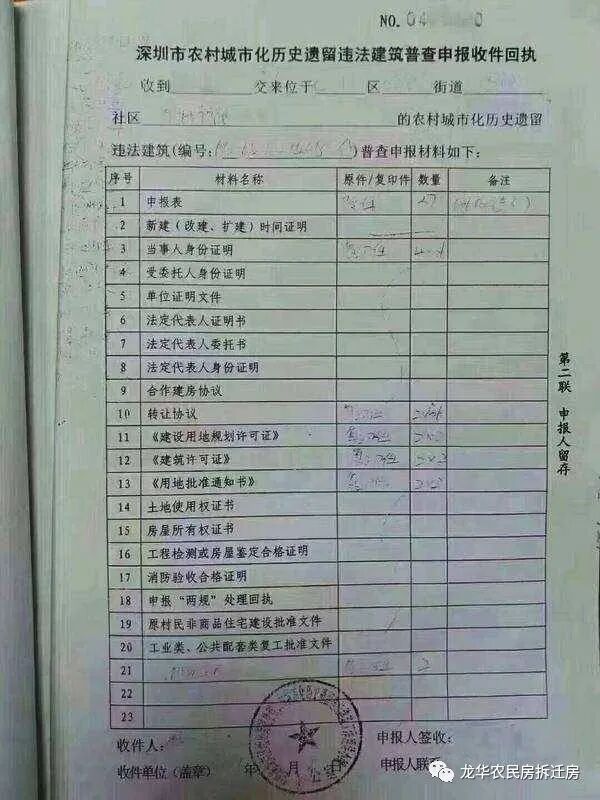 NO. 04
深圳市农村城市化历史遗留违法建筑普查申报收件回执
收到 交来位于 区 街道
社区 的农村城市化历史遗留
违法建筑(编号: )普查申报材料如下:
序号 材料名称 原件/复印件 数量 备注
1 申报表
2 新建（改建、扩建）时间证明
3 当事人身份证明
4 受委托人身份证明
5 单位证明文件
6 法定代表人证明书
7 法定代表人委托书
8 法定代表人身份证明
9 合作建房协议
10 转让协议
11 《建设用地规划许可证》
12 《建筑许可证》
13 《用地批准通知书》
14 土地使用权证书
15 房屋所有权证书
16 工程检测或房屋鉴定合格证明
17 消防验收合格证明
18 申报“两规”处理回执
19 原村民非商品住宅建设批准文件
20 工业类、公共配套类复工批准文件
21
22
23
收件人: 申报人签收:
收件单位(盖章) 年 月 申报人联
第二联 申报人留存
龙华农民房拆迁房